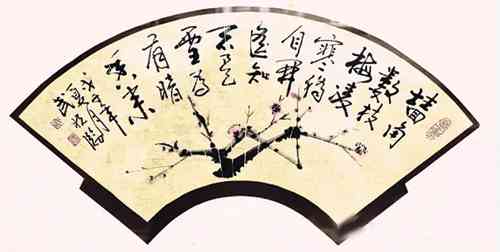 墙角
数枝
梅凌
寒独
自开
遥知
不是
雪为
有暗
香来
戊子年
夏